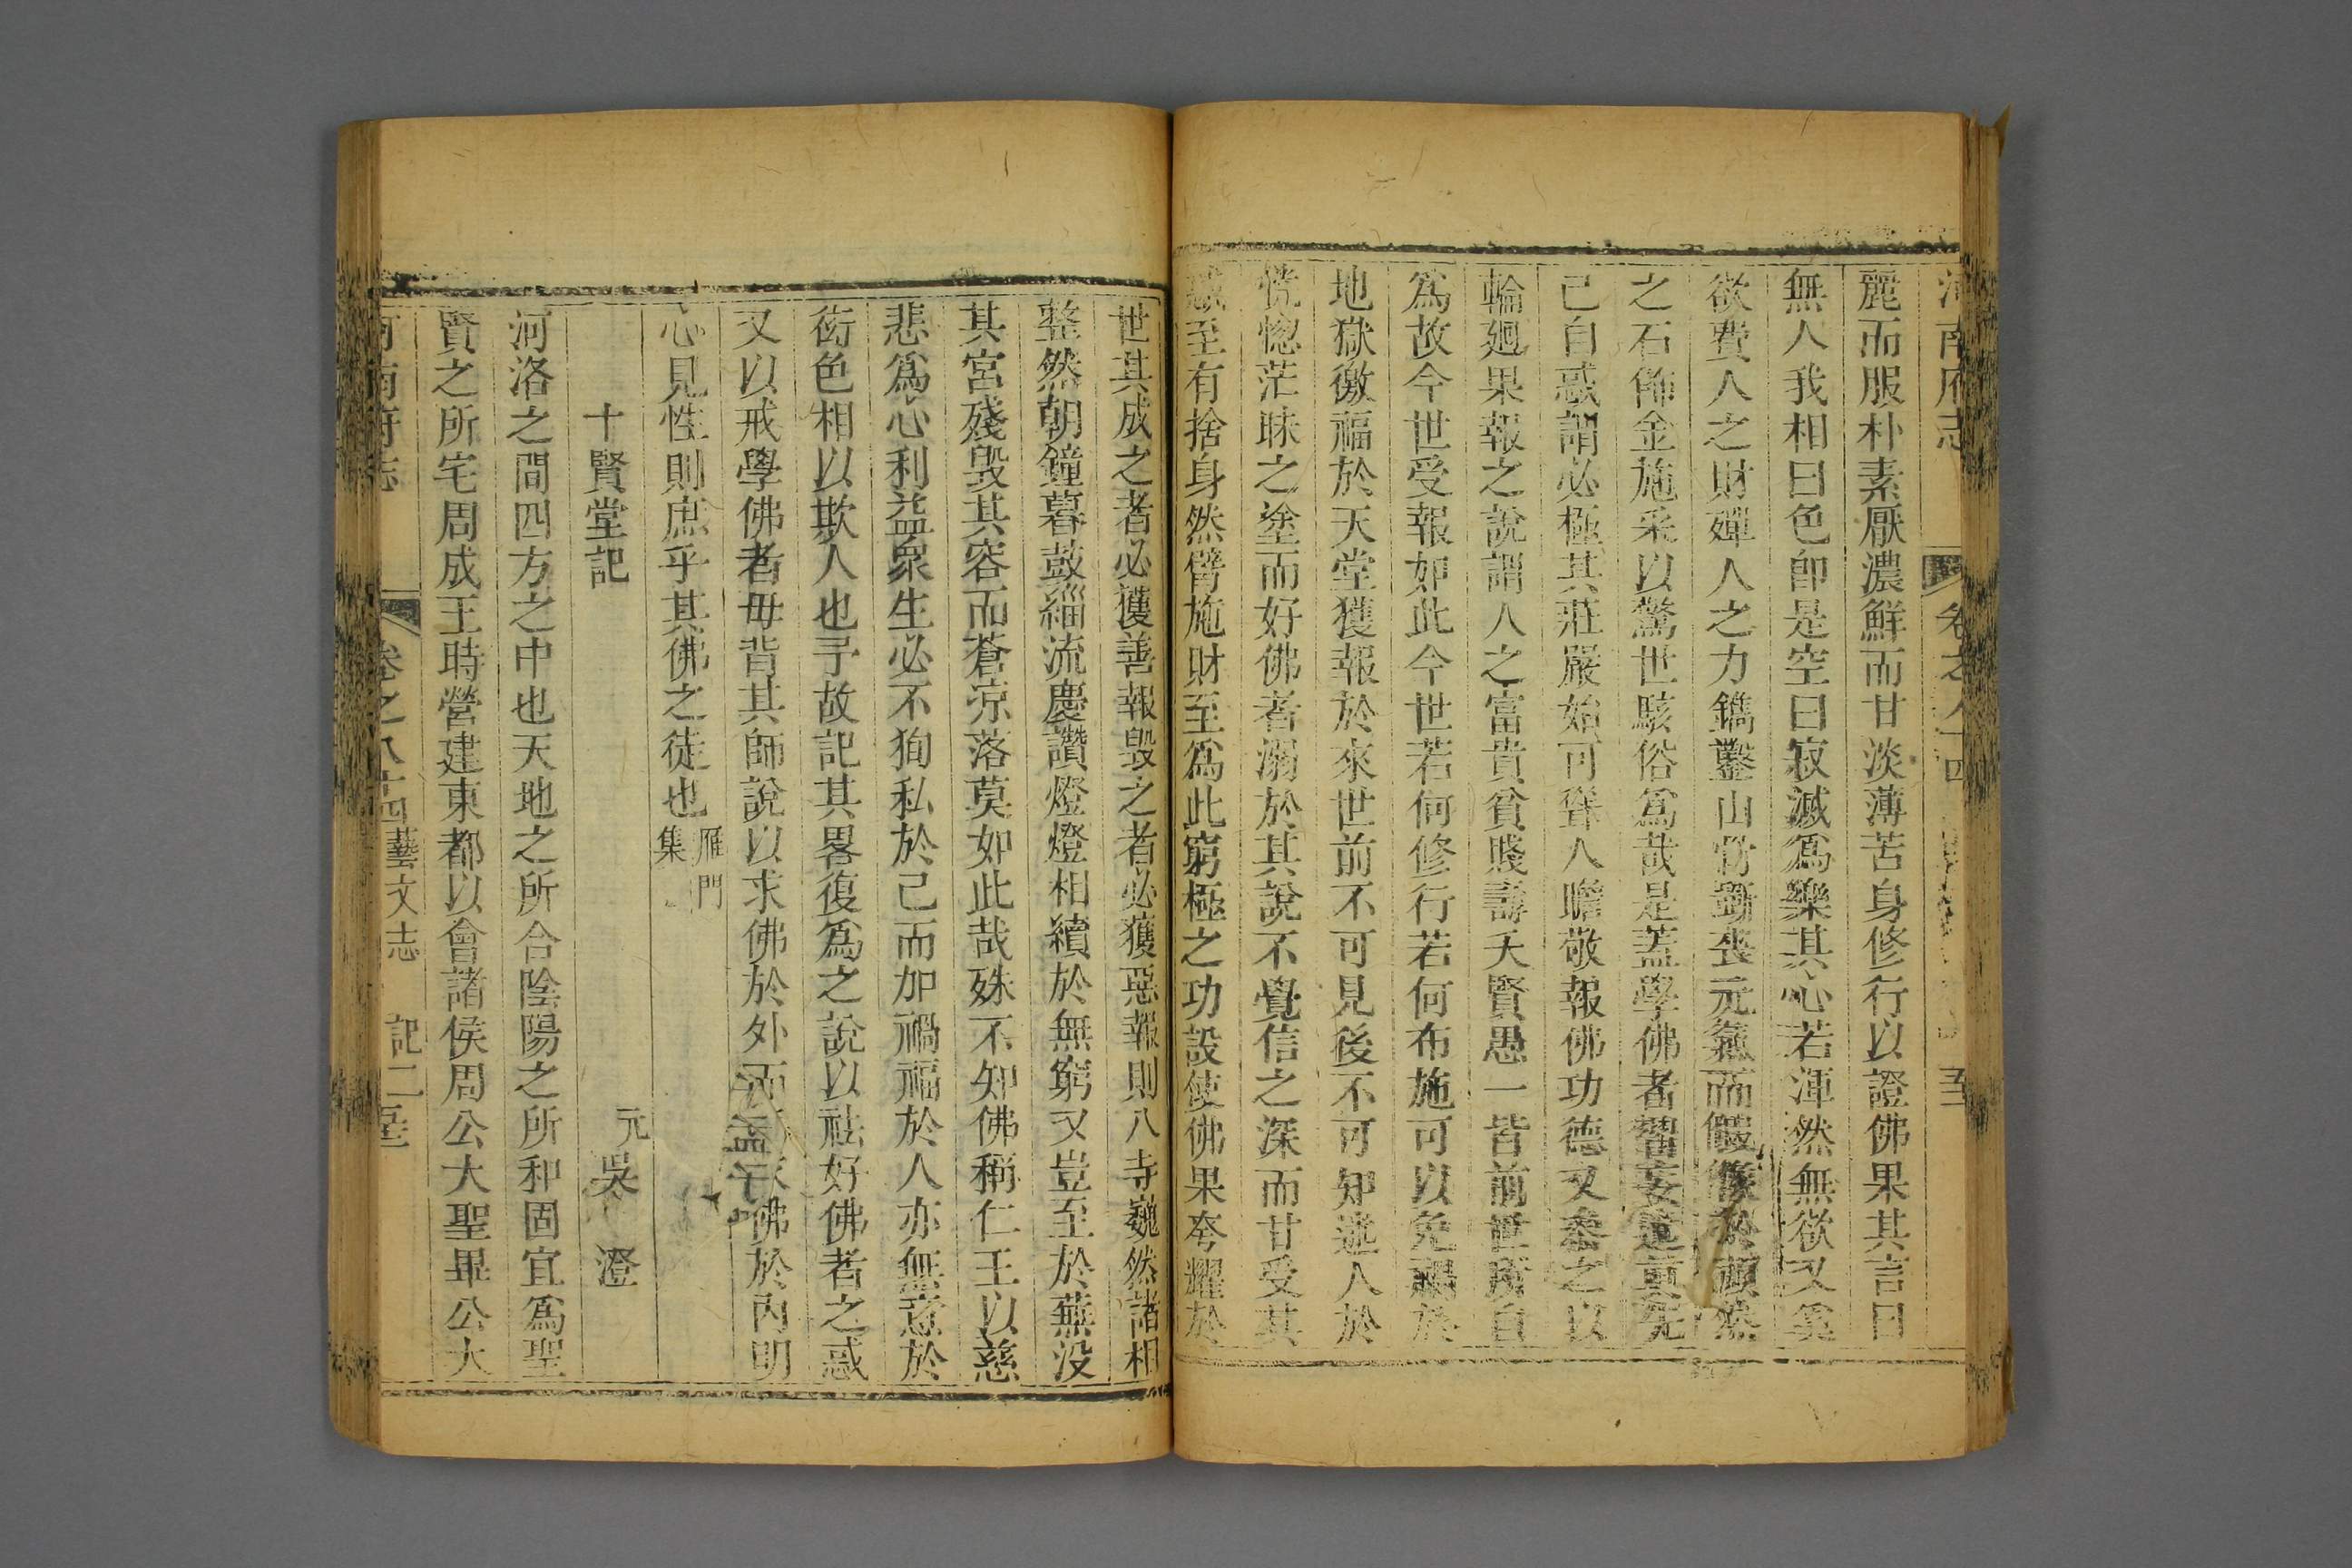 河南府志 卷之八十四 五
麗而服朴素厭濃鮮而甘淡薄苦身修行以證佛果其言曰
無人我相曰色卽是空曰寂滅爲樂其心若渾然無欲又奚
欲費人之財殫人之力鐫鑿山骨斵喪元氣而假像於頑然
之石飾金施采以驚世駭俗爲哉是蓋學佛者習妄迷眞先
己自惑謂必極其莊嚴始可聳人瞻敬報佛功德又參之以
輪廻果報之說謂人之富貴貧賤壽夭賢愚一皆前世所自
爲故今世受報如此今世若何修行若何布施可以免禍於
地獄徼福於天堂獲報於來世前不可見後不可知迷人於
恍惚茫昧之塗而好佛者溺於其說不覺信之深而甘受其
惑至有捨身然臂施財至爲此窮極之功設使佛果夸耀於
世其成之者必獲善報毁之者必獲惡報則八寺巍然諸相
整然朝鐘暮鼓緇流慶讚燈燈相續於無窮又豈至於蕪没
其宮殘毁其容而蒼凉落莫如此哉殊不知佛稱仁王以慈
悲爲心利益衆生必不狥私於己而加禍福於人亦無意於
衒色相以欺人也予故記其畧復爲之說以祛好佛者之惑
又以戒學佛者毋背其師說以求佛於外而 佛於內明
心見性則庶乎其佛之徒也 雁門集
十賢堂記 元 吳 澄
河洛之間四方之中也天地之所合陰陽之所和固宜爲聖
賢之所宅周成王時營建東都以會諸侯周公大聖畢公大
河南府志 卷之八十四 藝文志 記二 五